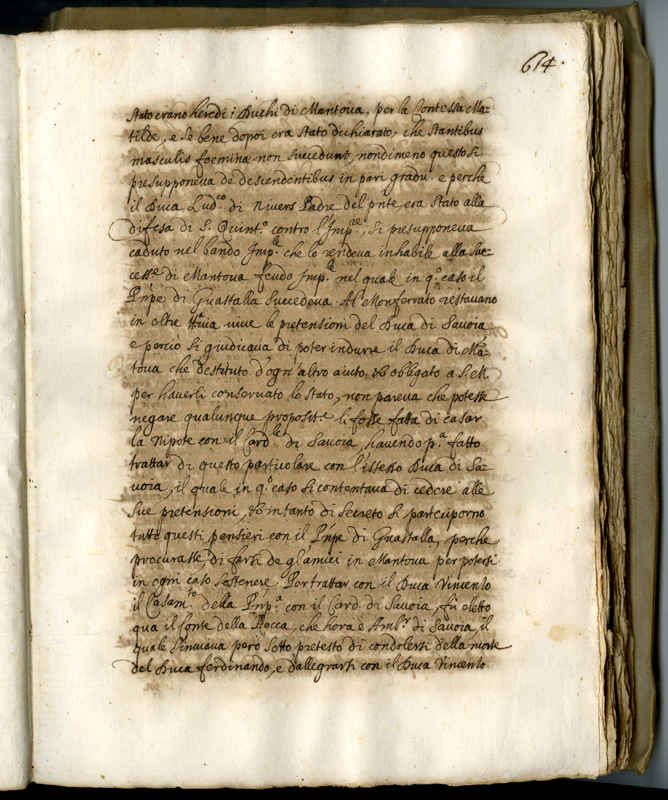 614.
stato erano heredi i Duchi di Mantoua, per la Contessa Ma:
tilde, e se bene dopoi era stato dichiarato, che stantibus
masculis foemina non succedunt, nondimeno questo si
presupponeua de descendentibus in pari gradu. e perche
il Duca Lud.co di Niuers Padre del pnte era stato alla
difesa di S. Quint.o contro l'Imp.re, si presupponeua
caduto nel bando Imp.le che lo rendeua inhabile alla suc=
cess.e di Mantoua feudo Imp.le nel quale in q.o caso il
Pnpe di Guastalla succedeua. Al Monferrato restauano
in oltre tt.a uiua uiue le pretensioni del Duca di Sauoia
e perciò si giudicaua di poter indurre il Duca di Mã=
toua che destituto d'ogn' altro aiuto, et obligato a S. M.
per hauerli conseruato lo stato, non pareua che potesse
negare qualunque proposit.e li fosse fatta di casar
la Nipote con il Card.le di Sauoia, hauendo p.a fatto
trattar di questo particolare con l'istesso Duca di Sa=
uoia, il quale in q.o caso si contentaua di cedere alle
sue pretensioni, et in tanto di secreto si participorno
tutti questi pensieri con il Pnpe di Guastalla, perche
procurasse di farsi de gl'amici in Mantoua per potersi
in ogni caso sostenere. Per trattar con il Duca Vincenzo
il Casam.to della Pnp.a con il Card. di Sauoia, fù eletto
qua il Conte della Rocca, che hora è Amb.r di Sauoia, il
quale s'inuiaua pero sotto pretesto di condolersi della morte
del Duca ferdinando, e rallegrarsi con il Duca Vincenzo